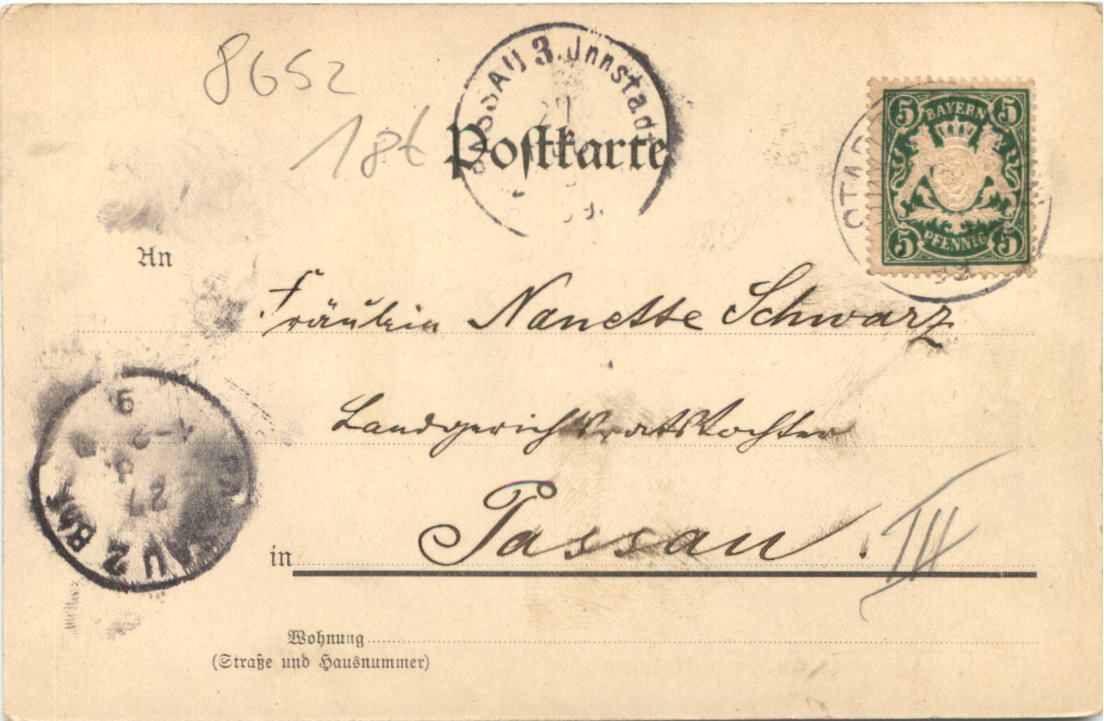 8652
18t
PASSAU 3. Innstadt
Postkarte
5 5
BAYERN
PFENNIG
5 5
99
An
Fräulein Nanette Schwarz
Landgerichtsratstochter
in Passau.
III
AU 2 Bhf
27
Wohnung
(Straße und Hausnummer)